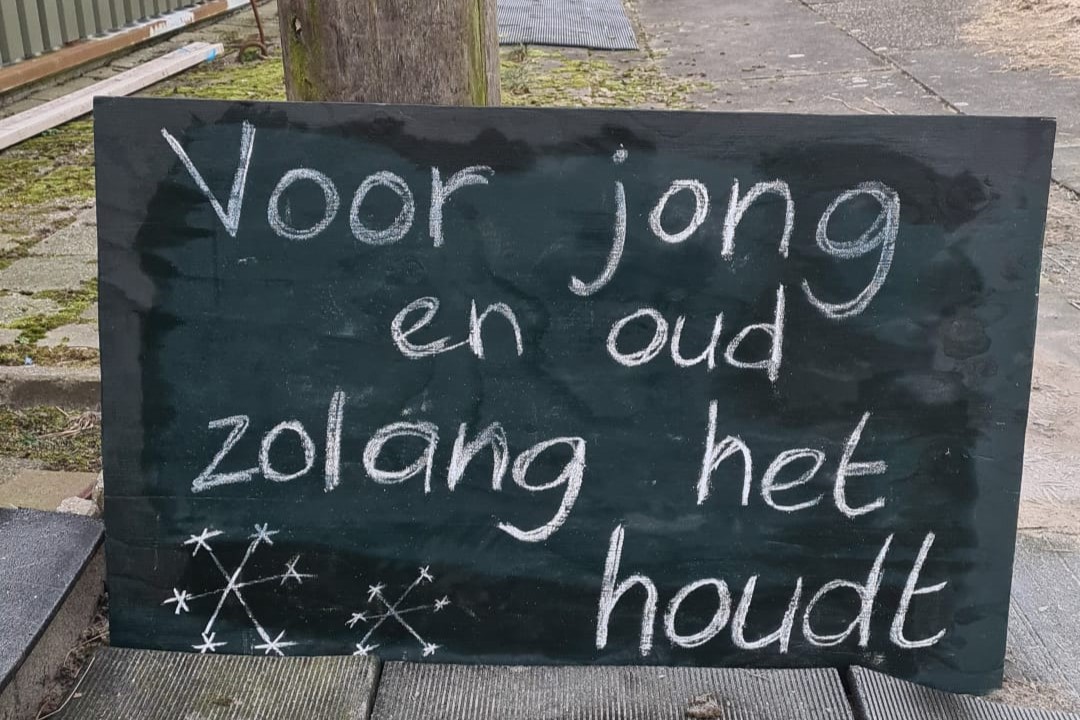 Voor jong
en oud
zolang het
houdt